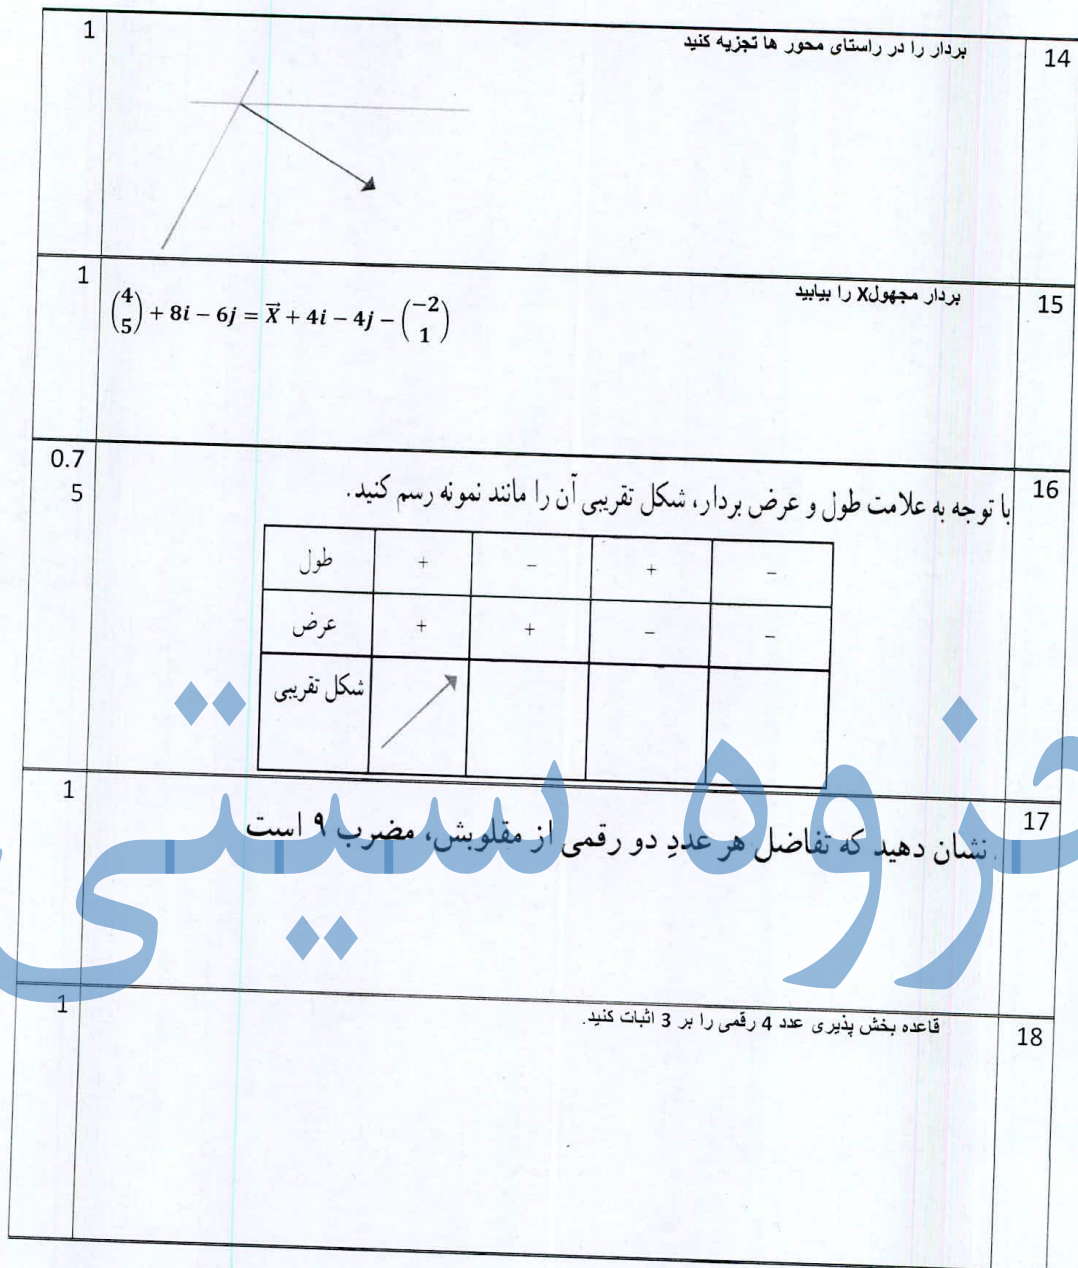 14 بردار را در راستای محور ها تجزیه کنید 1
15 بردار مجهولX را بیابید 1
(4 5) + 8i − 6j = X⃗ + 4i − 4j − (−2 1)
16 با توجه به علامت طول و عرض بردار، شکل تقریبی آن را مانند نمونه رسم کنید. 0.75
طول + − + −
عرض + + − −
شکل تقریبی
17 نشان دهید که تفاضل هر عددِ دو رقمی از مقلوبش، مضرب ۹ است 1
18 قاعده بخش پذیری عدد 4 رقمی را بر 3 اثبات کنید. 1
جزوه سیتی